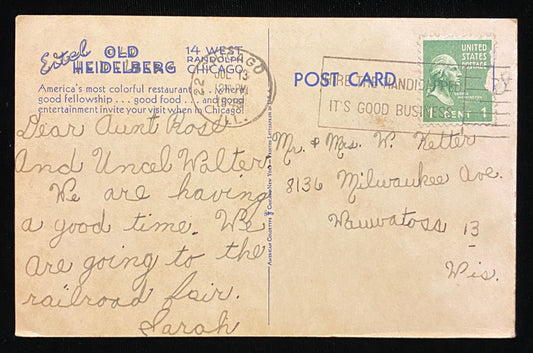 Eitel OLD HEIDELBERG
14 WEST RANDOLPH CHICAGO
America's most colorful restaurant offers good fellowship . . . good food . . . and good entertainment invite your visit when in Chicago!
Dear Aunt Rose
And Uncel Walter.
We are having
a good time. We
are going to the
railroad fair.
Sarah
CHICAGO
22
JUL 13
ILL.
POST CARD
IT'S GOOD BUSINESS
UNITED STATES POSTAGE
1 CENT 1
Mr. & Mrs. W. Ketter
8136 Milwaukee Ave.
Wauwatosa 13
Wis.